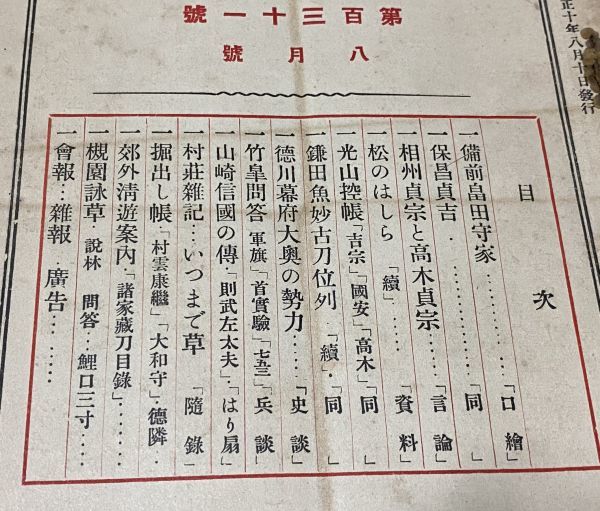 第百三十一號
八月號
正十年八月十日發行
目次
一備前畠田守家………「口繪」
一保昌貞吉………「同」
一相州貞宗と高木貞宗…「言論」
一松のはしら「續」……「資料」
一光山控帳「吉宗」「國安」「高木」「同」
一鎌田魚妙古刀位列「續」・「同」
一德川幕府大奥の勢力……「史談」
一竹皐問答 軍旗「首實驗」「七五三」「兵談」
一山崎信國の傳「則武左太夫」「はり扇」
一村莊雜記…いつまで草「隨錄」
一掘出し帳「村雲康繼」「大和守」・德隣・
一郊外淸遊案內・「諸家藏刀目錄」……
一槻園詠草・說林 問答…鯉口三寸……
一會報…雜報…廣告……